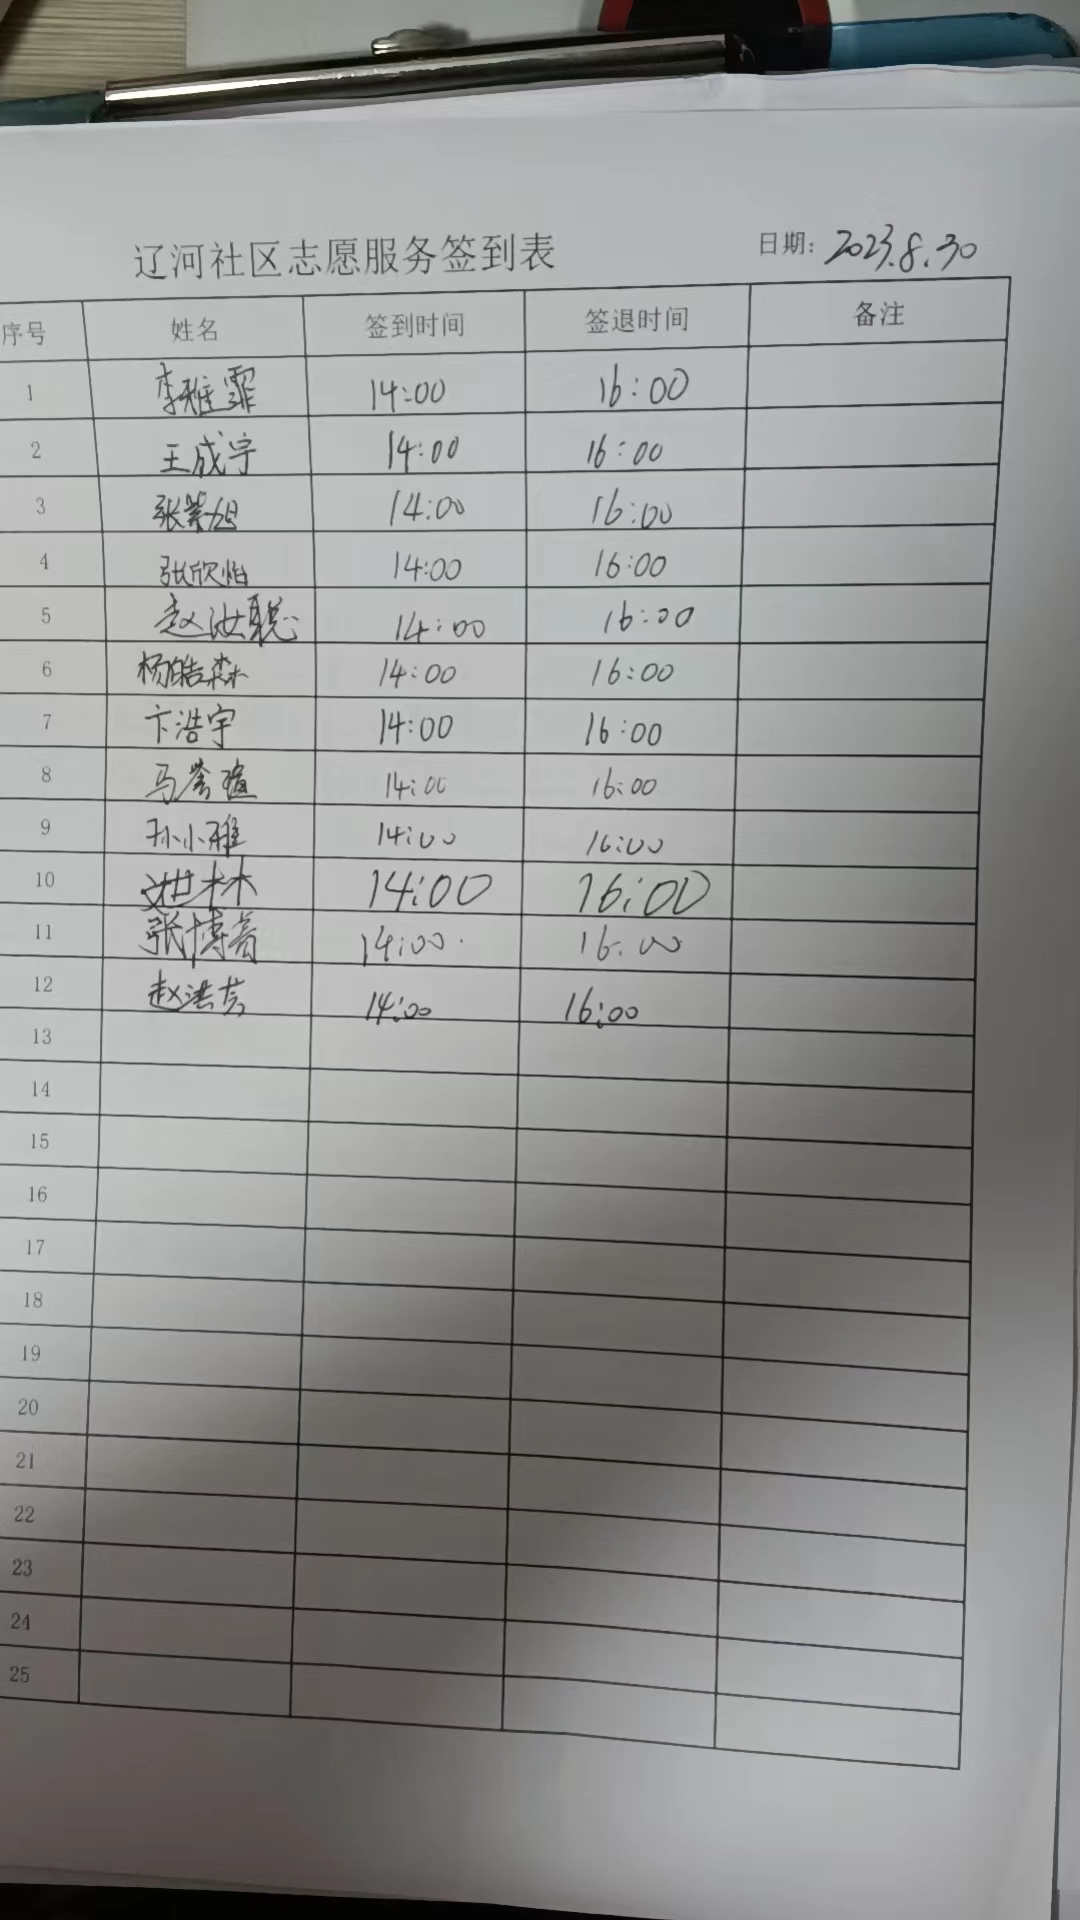 辽河社区志愿服务签到表 日期: 2023.8.30
序号 姓名 签到时间 签退时间 备注
1 李雅霏 14:00 16:00
2 王成宇 14:00 16:00
3 张紫旭 14:00 16:00
4 张欣怡 14:00 16:00
5 赵汝聪 14:00 16:00
6 杨皓森 14:00 16:00
7 卞浩宇 14:00 16:00
8 马誉瑄 14:00 16:00
9 孙小雅 14:00 16:00
10 14:00 16:00
11 张博 14:00 16:00
12 赵洪 14:00 16:00
13
14
15
16
17
18
19
20
21
22
23
24
25